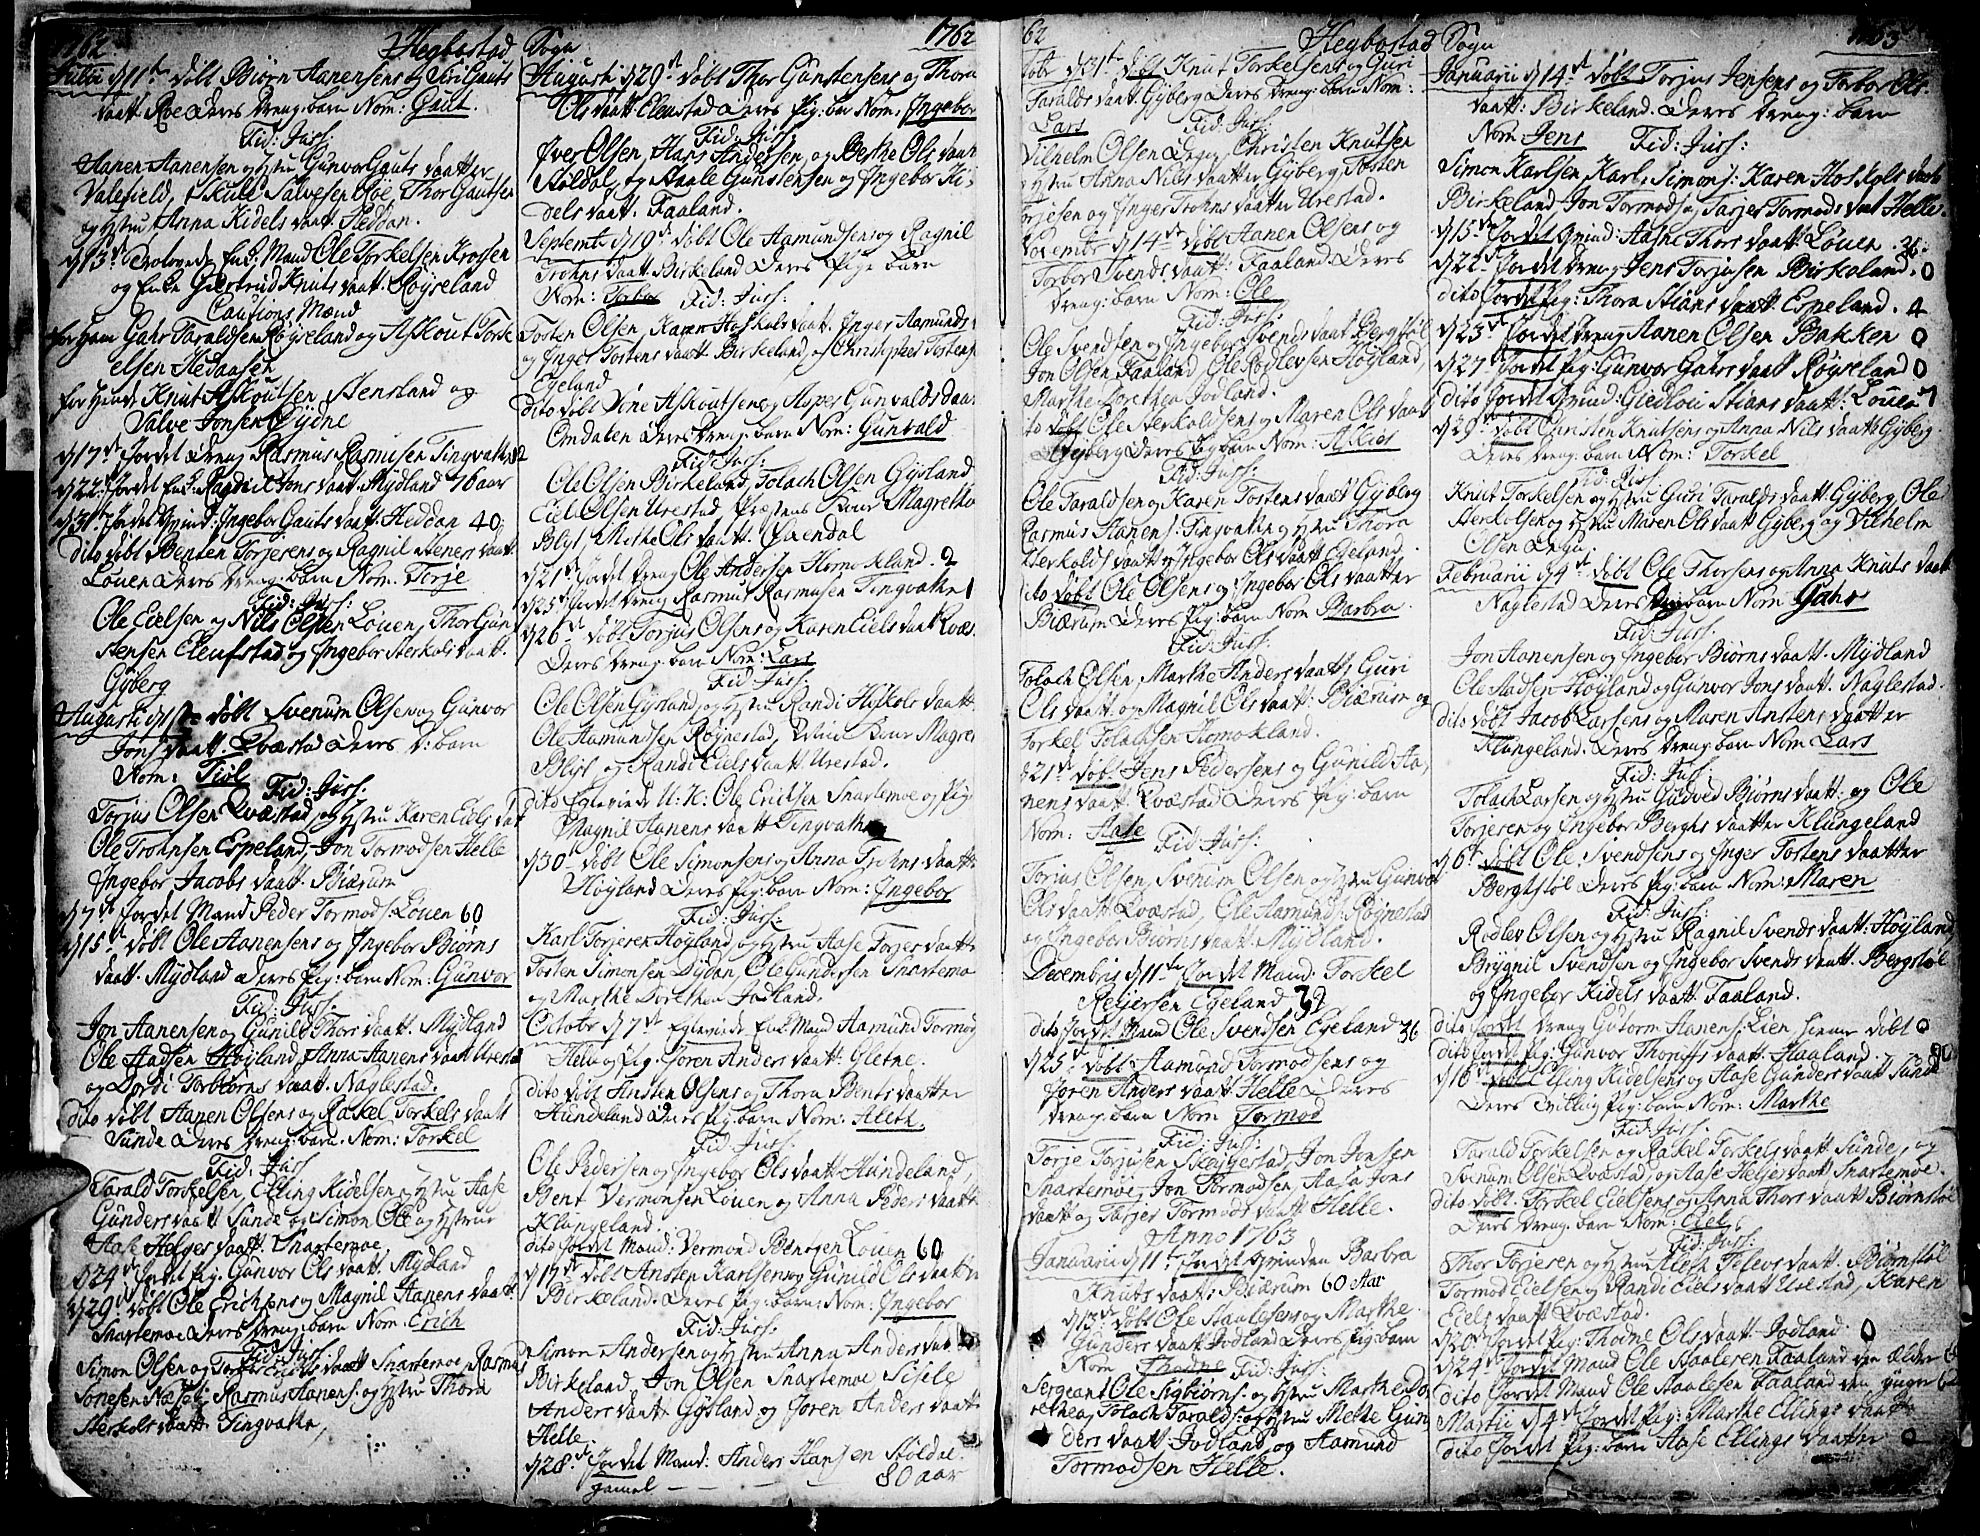 1762 Hegbostad Sogn 1762
Julii d 11te døbt Biørn Aanensens og Siri Gauts
daatt. Roe Deres Dreng: barn Nom: Gaut
Fid: Juss.
Aanen Aanensen og Hstru Gunvor Gauts daatter
Valefield, Skule Salvesen Roe, Thor Gautsen
og Hstru Anna Kidels daatt. Heddan.
d 13de Trolovede Enk: Mand Ole Torkelsen Krossen
og Enke Giertrud Knuts daatt. Røyseland
Cautions Mænd
for Ham Gahr Taraldsen Røyseland og Askout Tork
elsen Hedaasen
for Hende Knut Askoutsen Stensland og
Salve Jonsen Dydne
d 17de Jordet Dreng Rasmus Rasmusen Tingvatne 12
d 22de Jordet Enk: Ragnil Jons daatt. Mydland 76 aar
d 31te Jordet Qvind: Ingebor Gauts daatt. Heddan 40
dito døbt Benten Torjesens og Ragnil Steners daatt.
Løuen Deres Dreng: barn Nom: Torje
Fid: Juss:
Ole Eielsen og Nils Olsen Løuen, Thor Gun
stensen Eleufstad og Ingebor Herkols daatt.
Gyberg
Augusti d 1te døbt Svenum Olsens og Gunvor
Jons daatt. Qvæstad Deres D: barn
Nom: Tiøl
Fid: Juss.
Torjus Olsen Qvæstad og Hstru Karen Eiels dat
Ole Tronsen Espeland, Jon Tormodsen Helle
Ingebor Jacobs daatt. Biærum
d 7de Jordet Mand Peder Tormods: Løuen 60
d 15de døbt Ole Aanensens og Ingebor Biørns
daatt. Mydland Deres Pig: barn Nom: Gunvor
Fid: Juss.
Jon Aanensen og Gunild Thors daatt. Mydland
Ole Aadsen Høyland, Anna Aanens daatt Urestad
og Dorti Torbiørns daatt. Naglestad.
dito døbt Aanen Olsens og Rakel Torkels daatt
Sunde Deres Dreng: barn. Nom: Torkel
Fid: Juss.
Tarald Torkelsen, Elling Kidelsen og Hstru Aase
Gunders daatt Sunde og Simon Ole og Hstrue
Aase Helges daatt. Snartemoe
d 24de Jordet Pig: Gunvor Ols daatt. Mydland
d 29de døbt Ole Erichsens og Magnil Aanens daatt
Snartemoe Deres Dreng: barn Nom: Erich
Fid: Juss.
Simon Olsen og Torber Erichs daatt Snartemoe, Rasmus
Rasmus Aanens: og Hstru Thora
Herkols daatt Tingvatne,
Augusti d 29de døbt Thor Gunstensens og Thora
Ols daatt. Eleustad Deres Pig: bar Nom: Ingebor
Fid: Juss.
Iver Olsen, Hans Andersen, og Berthe Ols daatt
Støldal, og Aaale Gunstensen og Ingebor Ki
dels daatt. Faaland.
Septembr d 19de døbt Ole Aamundsens og Ragnil
Trohns daatt. Birkeland Deres Pige barn
Nom: Torbor Fid: Juss:
Tosten Olsen, Karen Hoskols daatt. Inger Aamunds
og Inger Tostens daatt Birkeland, og Christopher Tostens
Egeland
dito døbt Vone Askoutsens og Asper Gunvalds daatt
Omdalen Deres Dreng: barn Nom: Gunvald
Fid: Juss:
Ole Olsen Birkeland, Tolach Olsen Gysland
Eiel Olsen Urestad Præstens Magrethe
Blys, Methe Ols daatt. Qvendal
d 21de Jordet Dreng Ole Andersen Homekland. 2
d 25de Jordet Dreng Rasmus Rasmusen Tingvatne 1
d 26de døbt Torjus Olsens og Karen Eiels daatt Qvæs.
Deres Dreng: barn Nom: Lars
Fid: Juss:
Ole Olsen Gysland og Hstru Randi Hoskols daatt
Ole Aamundsen Røynestad, Magre
Blys og Randi Eiels daatt Urestad.
dito Egteviede U: K: Ole Erichsen Snartemoe og Pig:
Magnil Aanens daatt Tingvatne
d 30 døbt Ole Simonsens og Anna Trohns daatt
Høyland Deres Pig: barn Nom: Ingebor
Fid: Juss:
Karl Torjesen Høyland, og Hstru Aase Torjes daatt
Tosten Simonsen Dydan, Ole Gundersen Snartemo
og Marthe Dorethea Jodland.
Octobr d 7de Egteviede Enk: Mand Aamund Tormods
Helle og Pig: Joren Anders daatt: Gletne.
dito døbt Ansten Olsens og Thora Bents daatter
Hundeland Deres Pig: barn Nom: Aleth.
Fid: Juss:
Ole Pedersen og Ingebor Ols daatt Hundeland
Bent Vermonsen Løuen og Anna Peders daatt
Klungeland.
dito Jordet Mand: Vermond Bentsen Løuen 60
d 17de døbt Ansten Karlsens og Gunild Ols daatt
Birkeland. Deres Pig: barn: Nom: Ingebor
Fid: Juss:
Simon Andersen og Hstru Anna Anders daat
Birkeland Jon Olsen Snartemoe Sisele
Anders daatt Gysland og Joren Anders daatt
Helle.
d 28de Jordet Mand: Anders Hansen Støldal.
gamel — — — 80 aar
62 Hegbostad Sogn 1763
Tobr d 31te døbt Knut Torkelsens og Guri
Taralds daatt Gyberg Deres Dreng: barn Nom:
Lars Fid: Juss:
Vilhelm Olsen Drgn, Christen Knutsen
og Hstru Anna Nils daatter Gyberg, Tosten
Torjesen og Inger Trohns daatter Urestad.
Novembr d 14de døbt Aanen Olsens og
Torbor Svends daatt: Faaland Deres
Dreng: barn Nom: Ole
Fid: Juss:
Ole Svendsen og Ingebor Svends daatt Bergstøl
Jon Olsen Faaland Ole Rodlevsen Høyland,
Marthe Dorethea Jodland.
to døbt Ole Herkolsens og Maren Ols daatt
Gyberg Deres Pig barn Nom:
Fid: Juss:
Ole Taraldsen og Karen Tostens daatt Gyberg
Rasmus Aanens: Tingvatne og Hstru Thora
Herkolds daatt og Ingebor Ols daatt Egeland.
ito døbt Ole Olsens og Ingebor Ols daatter
Biærum Deres Pig: barn Nom Barbra.
Fid: Juss:
Tolach Olsen, Marthe Anders daatt, Guri
Ols daatt. og Magnil Ols daatt: Biærum og
Torkel Tolachsen Homekland.
d 21de døbt Jens Pedersens og Gunild Aa
nens daatt. Qvæstad Deres Pig: barn
Nom: Aase Fid: Juss:
Torjus Olsen, Svenum Olsen og Hstru Gunvor
Ols daatt Qvæstad, Ole Aamunds: Røynestad
og Ingebor Biørns daatt. Mydland.
Decembris d 11te Jordet Mand: Torkel
Reiersen Egeland 39
dito Jordet Mand Ole Svendsen Egeland 36
d 25de døbt: Aamund Tormodsens og
Joren Anders daatt Helle Deres
Dreng: barn Nom Tormod
Fid: Juss:
Torje Torjusen Skeggestad, Jon Jonsen
Snartemoe, Jon Tormodsen, Aasa Jons
daatt og Tarjer Tormods daatt Helle.
Anno 1763
Januarii d 11te Jordet Qvinden Barbra
Knuts daatt: Biærum 60 Aar
d 13de døbt Ole Staalesens og Marthe
Gunders daatt Jodland Deres Pig: barn
Nom Thorine Fid: Juss:
Sergeant Ole Sigbiørns: og Hstru Marthe Do
rethea, Tolach Taralds: og Hstru Methe Gun
ders daatt: Jodland og Aamund
Tormodsen Helle.
Januarii d 14de døbt Torjus Jensens og Torbor Ols
daatt: Birkeland. Deres Dreng: barn
Nom Jens Fid: Juss:
Simon Karlsen, Karl: Simons: Karen Hoskols daatt
Birkeland Jon Tormodsen, Tarjer Tormods daat Helle.
d 15de Jordet Qvind: Aashe Thors daatt Løuen. 36.
d 22de Jordet Dreng Jens Torjusen Birkeland. 0
dito Jordet Pig: Thora Stians daatt. Espeland. 4
d 23de Jordet Dreng Aanen Olsen Bakken 0
d 27de Jordet Pig: Gunvor Gahrs daatt Røyseland 0
dito Jordet Qvind: Giedlou Stians daatt: Løuen 7
d 29de døbt Christen Knutsens og Anna Nils daatt Gyberg.
Deres Dreng: barn Nom: Torkel
Fid: Juss
Knut Torkelsen og Hstru Guri Taralds daatt. Gyberg Ole
Herkolsen og Hstru Maren Ols daatt Gyberg og Vilhelm
Olsen Drgn
Februarii d 4de døbt Ole Thorsens og Anna Knuts daatt
Naglestad Deres barn Nom Gahr
Fid: Juss.
Jon Aanensen og Ingebor Biørns daatt. Mydland
Ole Aadsen Høyland og Gunvor Jons daatt. Naglestad.
dito døbt Jacob Larsens og Maren Anstens daatter
Klungeland. Deres Dreng: barn Nom Lars
Fid: Juss.
Tolach Larsen og Hstru Gudved Biørns daatt: og Ole
Torjesen og Ingebor Berghs daatter Klungeland
d 6te døbt Ole Svendsens og Inger Tostens daatter
Bergtstøl Deres Pig: barn Nom: Maren
Fid: Juss:
Rodlev Olsen og Hstru Ragnil Svends daatt: Høyland,
Brygnil Svendsen og Ingebor Svends daatt. Bergstøl
og Ingebor Kidels daatt. Faaland.
dito Jordet Dreng Gutorm Aanens: Lien hiemme døbt 0
dito Jordet Pig: Gunvor daatt. Haaland. 90
d 16de døbt Elling Kidelsens og Aase Gunders daatt Sunde
Deres Tvilling Pig: barn Nom: Marthe
Fid: Juss.
Tarald Torkelsen og Rakel Torkels daatt. Sunde, og
Svenum Olsen Qvæstad, og Aase Helges daatt Snartemoe.
dito døbt: Torkel Eielsens og Anna Thors daatt Biørnstøl
Deres Dreng: barn Nom: Eiel
Fid: Juss:
Thor Torjesen og Hstru Aleth Televs daatt. Biørnstøl
Tormod Eielsen og Randi Eiels daatt Urestad, Karen
Eiels daatt Qvæstad.
d 20de Jordet Pig: Thorine Ols daatt Jodland. 0
d 24de Jordet Mand Ole Staalesen Faaland den Ælder
dito Jordet Mand Ole Staalesen Faaland den yngre
Martii d 4de Jordet Pig: Marthe Ellings daatt
dito Jordet Pig: barn Aase Ellings daatter 0